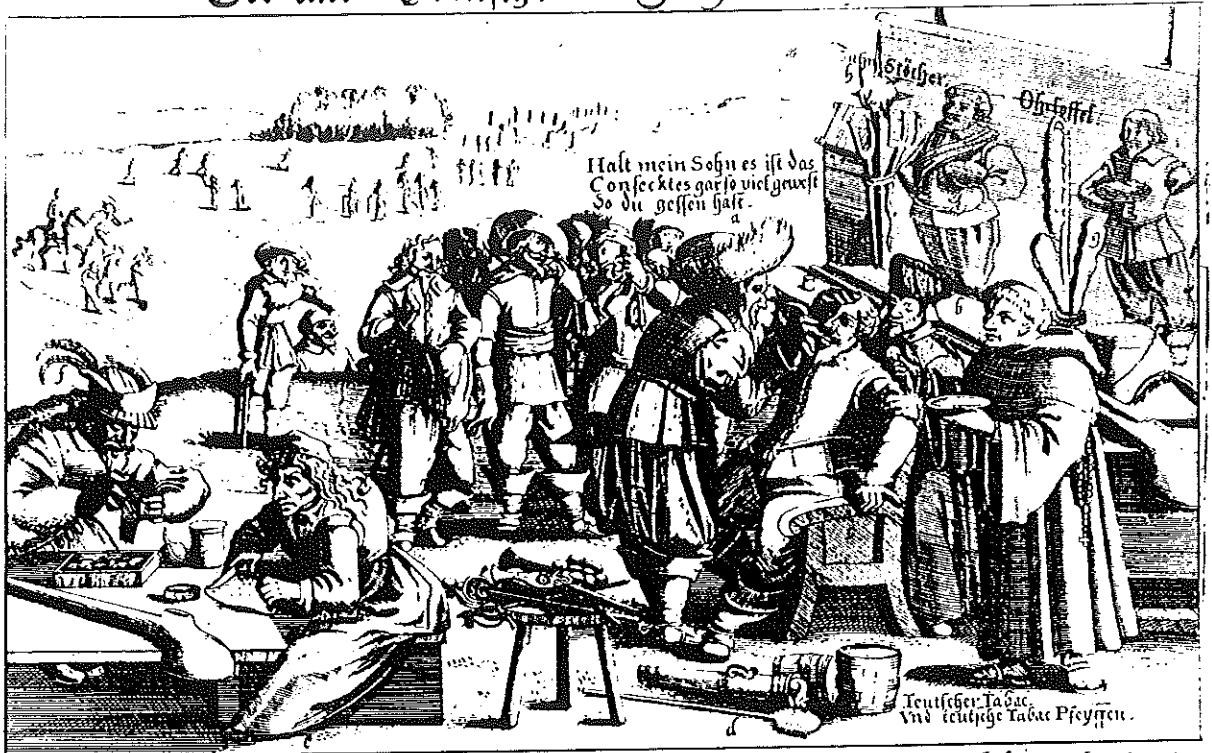 Stöcher.
Ohrloffel.
Halt mein Sohn es ist das
Confecktes gar so viel gewest
So du gessen hast.
a
9
6
Teutscher Tabac.
Vnd teutsche Tabac Pfeyffen.